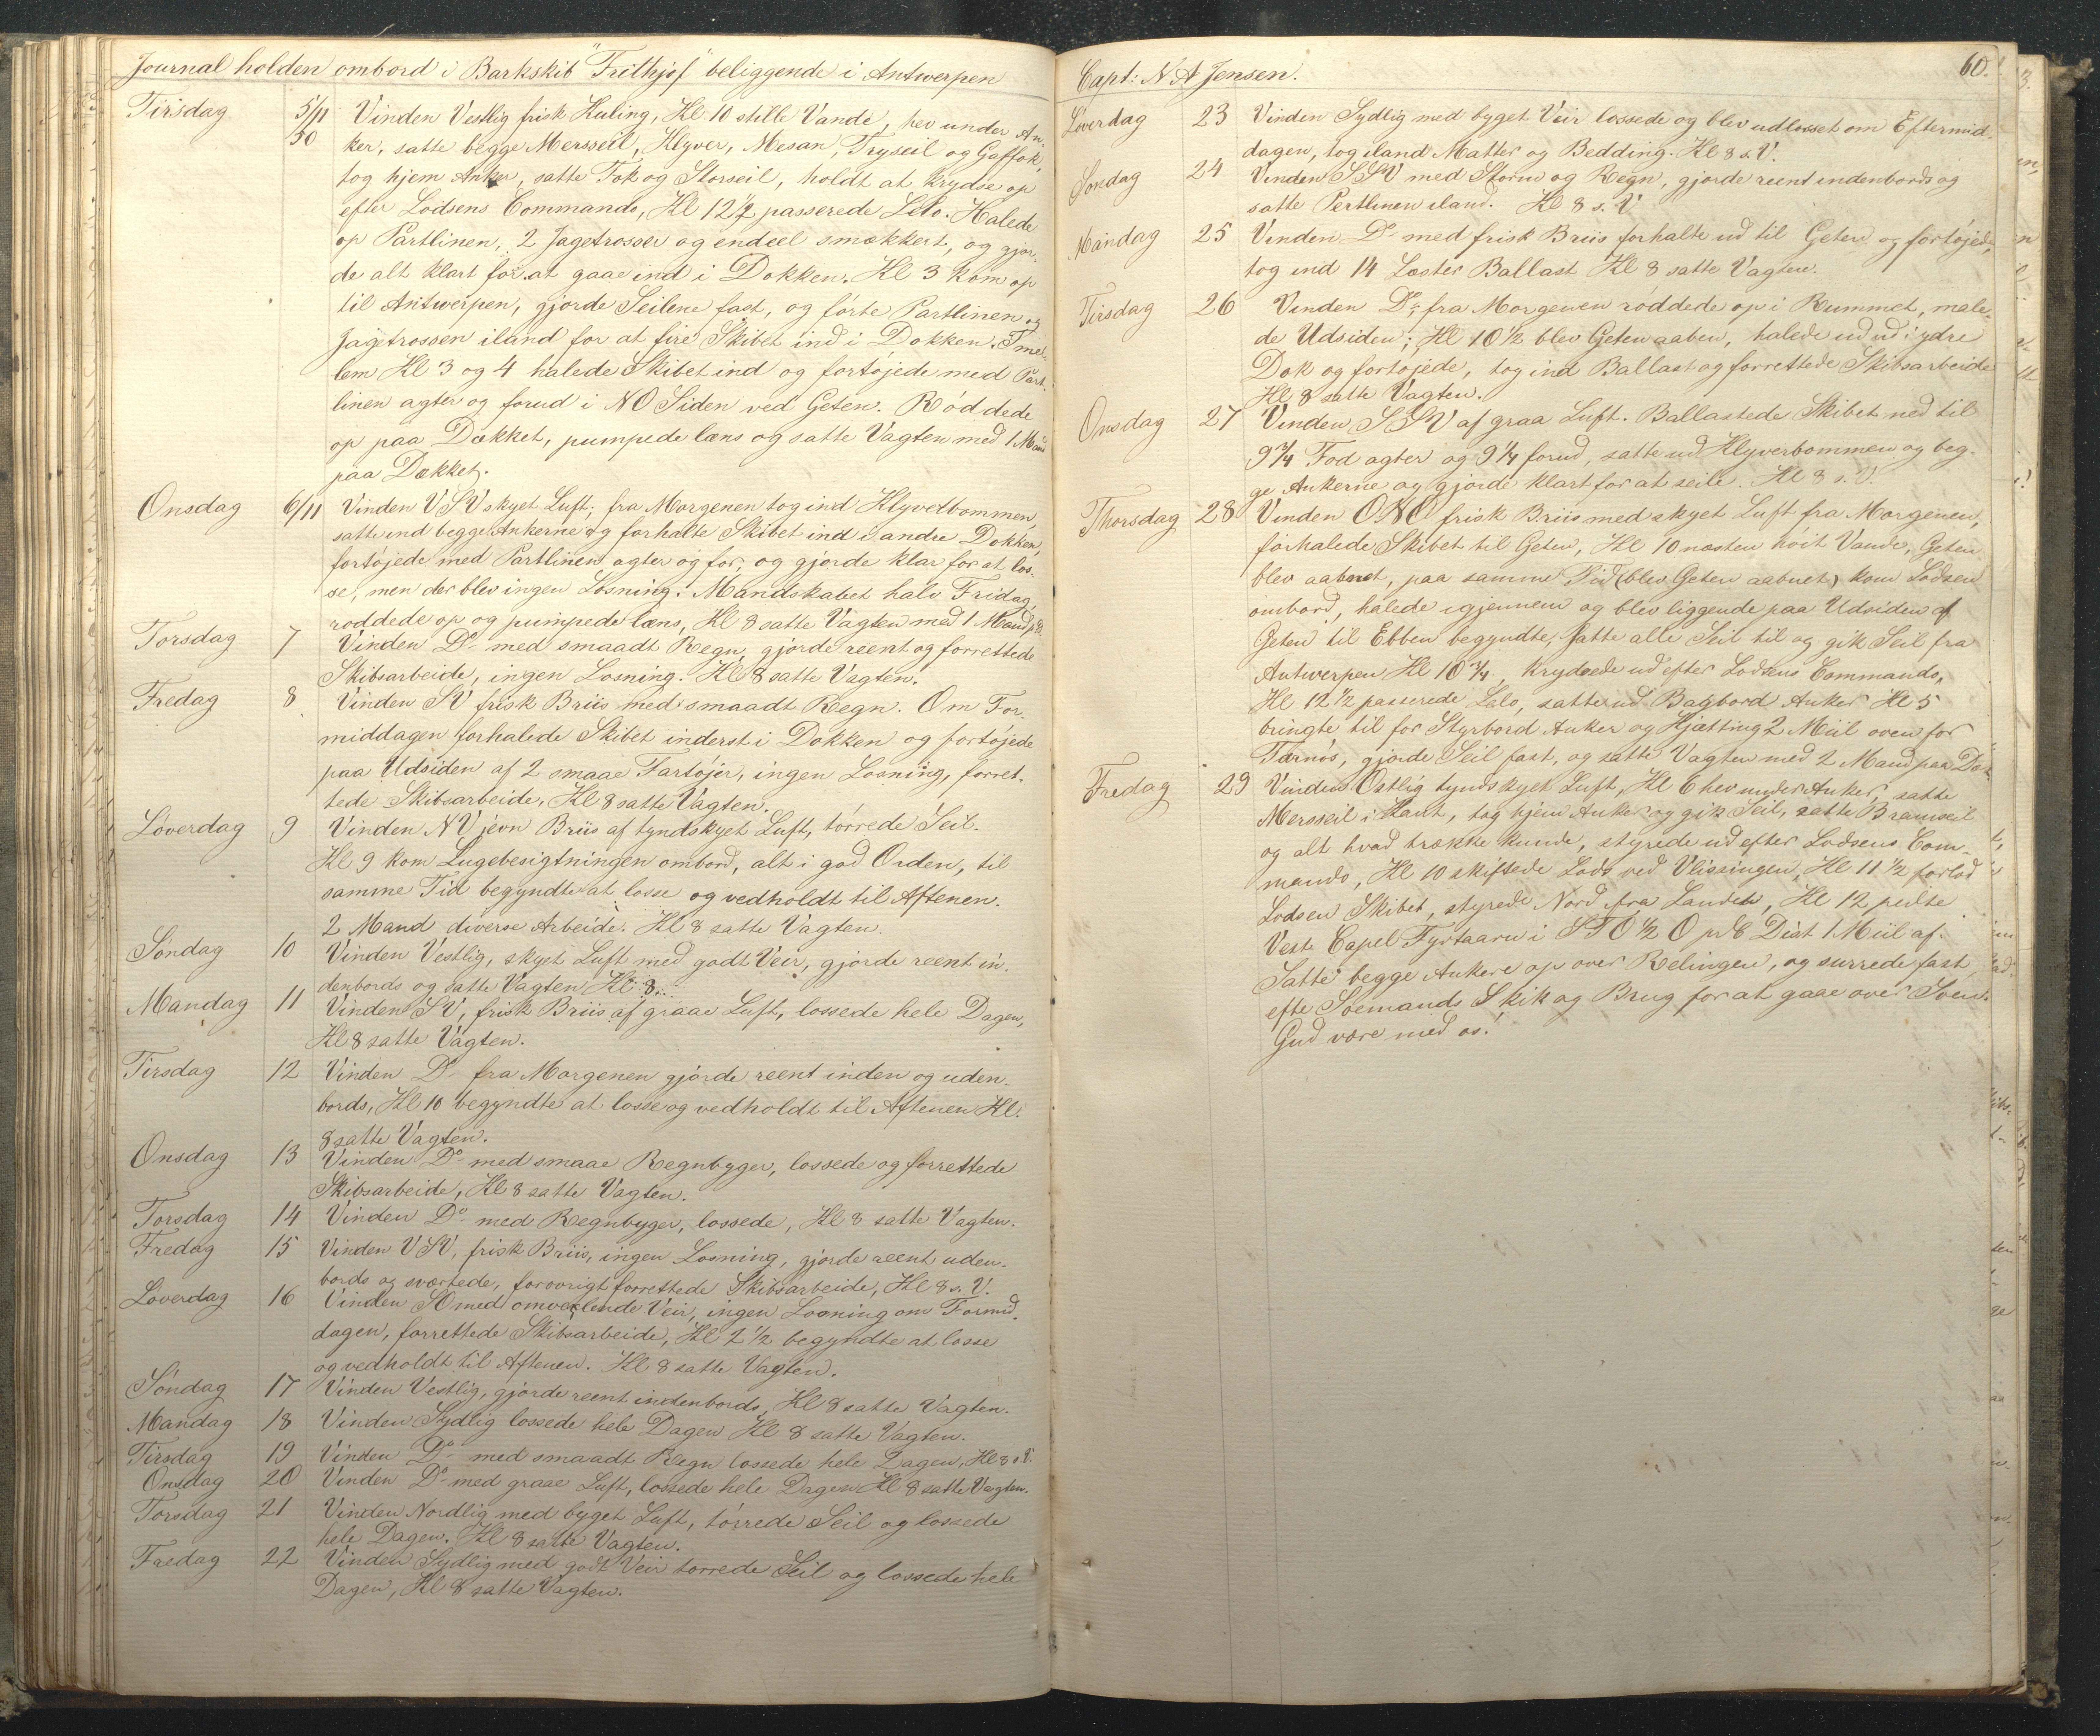 Journal holden ombord i Barkskib "Frithjof" beliggende i Antwerpen
Tirsdag 5/11 50 Vinden Vestlig frisk Kuling, Kl 10 stille Vande, hev under An-
ker, satte begge Mersseil, Klyver, Mesan, Tryseil og Gaffok,
tog hjem Anker, satte Fok og Storseil, holdt at krydse op
efter Lodsens Commando, Kl 12 1/2 passerede Lilo. Halede
op Partlinen, 2 Jagetrosser og endeel smækkert, og gjor-
de alt klart for at gaae ind i Dokken. Kl 3 kom op
til Antwerpen, gjorde Seilene fast, og førte Partlinen og
Jagetrossen iland for at fire Skibet ind i Dokken. Imel-
lem Kl 3 og 4 halede Skibet ind og fortøjede med Part-
linen agter og forud i NO Siden ved Geten. Røddede
op paa Dækket, pumpede læns og satte Vagten med 1 Mand
paa Dækket.
Onsdag 6/11 Vinden VSV skyet Luft; fra Morgenen tog ind Klyverbommen,
satte ind begge Ankerne og forhalte Skibet ind i andre Dokken,
fortøjede med Partlinen agter og for, og gjorde klar for at los-
se, men der blev ingen Losning. Mandskabet halv Fridag,
roddede op og pumpede læns, Kl 8 satte Vagten med 1 Mand p.D.
Torsdag 7 Vinden Do med smaadt Regn, gjorde reent og forrettede
Skibsarbeide, ingen Losning. Kl 8 satte Vagten.
Fredag 8 Vinden SV frisk Briis med smaadt Regn. Om For-
middagen forhalede Skibet inderst i Dokken og fortøjede
paa Udsiden af 2 smaae Fartøjer, ingen Losning, forret-
tede Skibsarbeide, Kl 8 satte Vagten.
Løverdag 9 Vinden NV jevn Briis af tyndskyet Luft, tørrede Seil.
Kl 9 kom Lugebesigtningen ombord, alt i god Orden, til
samme Tid begyndte at losse og vedholdt til Aftenen.
2 Mand diverse Arbeide. Kl 8 satte Vagten.
Søndag 10 Vinden Vestlig, skyet Luft med godt Veir, gjorde reent in-
denbords og satte Vagten Kl 8.
Mandag 11 Vinden SV, frisk Briis af graae Luft, lossede hele Dagen,
Kl 8 satte Vagten.
Tirsdag 12 Vinden Do fra Morgenen gjorde reent inden og uden-
bords, Kl 10 begyndte at losse og vedholdt til Aftenen Kl.
8 satte Vagten.
Onsdag 13 Vinden Do med smaae Regnbyger, lossede og forrettede
Skibsarbeide, Kl 8 satte Vagten.
Torsdag 14 Vinden Do med Regnbyger, lossede, Kl 8 satte Vagten.
Fredag 15 Vinden VSV, frisk Briis, ingen Losning, gjorde reent uden-
bords og sværtede, forøvrigt forrettede Skibsarbeide, Kl 8 s. V.
Løverdag 16 Vinden SO med omvexlende Veir, ingen Losning om Formid-
dagen, forrettede Skibsarbeide, Kl 2 1/2 begyndte at losse
og vedholdt til Aftenen. Kl 8 satte Vagten.
Søndag 17 Vinden Vestlig, gjorde reent indenbords, Kl 8 satte Vagten.
Mandag 18 Vinden Sydlig lossede hele Dagen Kl 8 satte Vagten.
Tirsdag 19 Vinden Do med smaadt Regn lossede hele Dagen, Kl 8 s. V.
Onsdag 20 Vinden Do med graae Luft, lossede hele Dagen Kl 8 satte Vagten.
Torsdag 21 Vinden Nordlig med byget Luft, tørrede Seil og lossede
hele Dagen. Kl 8 satte Vagten.
Fredag 22 Vinden Sydlig med godt Veir torrede Seil og lossede hele
Dagen, Kl 8 satte Vagten.
Capt: N A Jensen. 60.
Løverdag 23 Vinden Sydlig med byget Veir lossede og blev udlosset om Eftermid-
dagen, tog iland Matter og Bedding. Kl 8 s. V.
Søndag 24 Vinden SSV med Storm og Regn, gjorde reent indenbords og
satte Pertlinen iland. Kl 8 s. V
Mandag 25 Vinden Do med frisk Briis forhalte ud til Geten og fortøjede,
tog ind 14 Læster Ballast Kl 8 satte Vagten.
Tirsdag 26 Vinden Do, fra Morgenen røddede op i Rummet, male-
de Udsiden; Kl 10 1/2 blev Geten aaben, halede ud ud i ydre
Dok og fortøjede, tog ind Ballast og forrettede Skibsarbeide
Kl 8 satte Vagten.
Onsdag 27 Vinden SSV af graa Luft. Ballastede Skibet ned til
9 3/4 Fod agter og 9 1/4 forud, satte ud Klyverbommen og beg-
ge Ankerne og gjorde klart for at seile. Kl 8 s. V.
Thorsdag 28 Vinden ONO frisk Briis med skyet Luft fra Morgenen,
forhalede Skibet til Geten, Kl 10 næsten høit Vande, Geten
blev aabnet, paa samme Tid (blev Geten aabnet) kom Lodsen
ombord, halede igjennem og blev liggende paa Udsiden af
Geten til Ebben begyndte, satte alle Seil til og gik Seil fra
Antwerpen Kl 10 3/4, krydsede ud efter Lodsens Commando,
Kl 12 1/2 passerede Lelo, satte ud Bagbord Anker Kl 5
bringte til for Styrbord Anker og Kjætting 2 Miil oven for
Tarnøs, gjorde Seil fast, og satte Vagten med 2 Mand paa Dæk
Fredag 29 Vinden Ostlig tyndskyet Luft, Kl 6 hev under Anker, satte
Mersseil i Kant, tog hjem Anker og gik Seil, satte Bramseil
og alt hvad trække kunde, styrede ud efter Lodsens Com-
mando, Kl 10 skiftede Lods ved Vlissingen, Kl 11 1/2 forlod
Lodsen Skibet, styrede Nord fra Landet, Kl 12 peilte
Vest Capel Fyrtaarn i STO 1/2 O Dist 1 Miil af.
Satte begge Ankere op over Relingen, og surrede fast
efte Soemands Skik og Brug for at gaae over Soen.
Gud være med os!